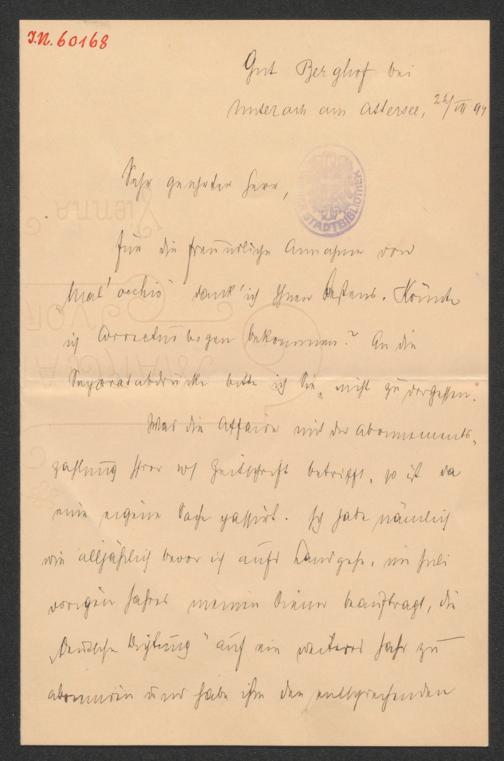 J.N. 60168
Gut Berghof bei
Unterach am Attersee, 26/VII 94
STADTBIBLIOTHEK
Sehr geehrter Herr,
Für die freundliche Annahme von
"Mal'occhio" dank' ich Ihnen bestens. Könnte
ich Correcturbogen bekommen? An die
Separatabdrücke bitte ich Sie, nicht zu vergessen.
Was die Affaire mit der Abonnements-
zahlung Ihrer Zeitschrift betrifft, so ist da
eine eigene Sache passirt. Ich habe nämlich
wie alljährlich bevor ich aufs Land gehe, im Juli
vorigen Jahres meinen Diener beauftragt, die
"Deutsche Dichtung" auf ein weiteres Jahr zu
abonniren und habe ihm den entsprechenden